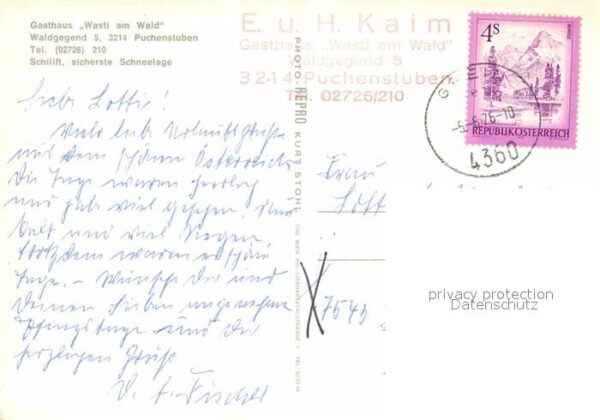 Gasthaus „Wastl am Wald"
Waldgegend 5, 3214 Puchenstuben
Tel. (02726) 210
Schilift, sicherste Schneelage
E. u. H. Kaim
Gasthaus „Wastl am Wald"
Waldgegend 5
3214 Puchenstuben
Tel. 02726/210
4S
REPUBLIK ÖSTERREICH
-5.-6.76-10
4360
PHOTO-REPRO KURT STOHL
Liebe Lotti!
Viele liebe Urlaubsgrüße
aus dem schönen Österreich.
Die Tage waren herrlich
und viel gesehen.
kalt und viel Regen.
Trotzdem waren es schöne
Tage. - Wünsche Dir und
Deinen Lieben angenehme
Pfingsttage und die
herzlichen Grüße
Fischer
Frau
Lott
7545
privacy protection
Datenschutz